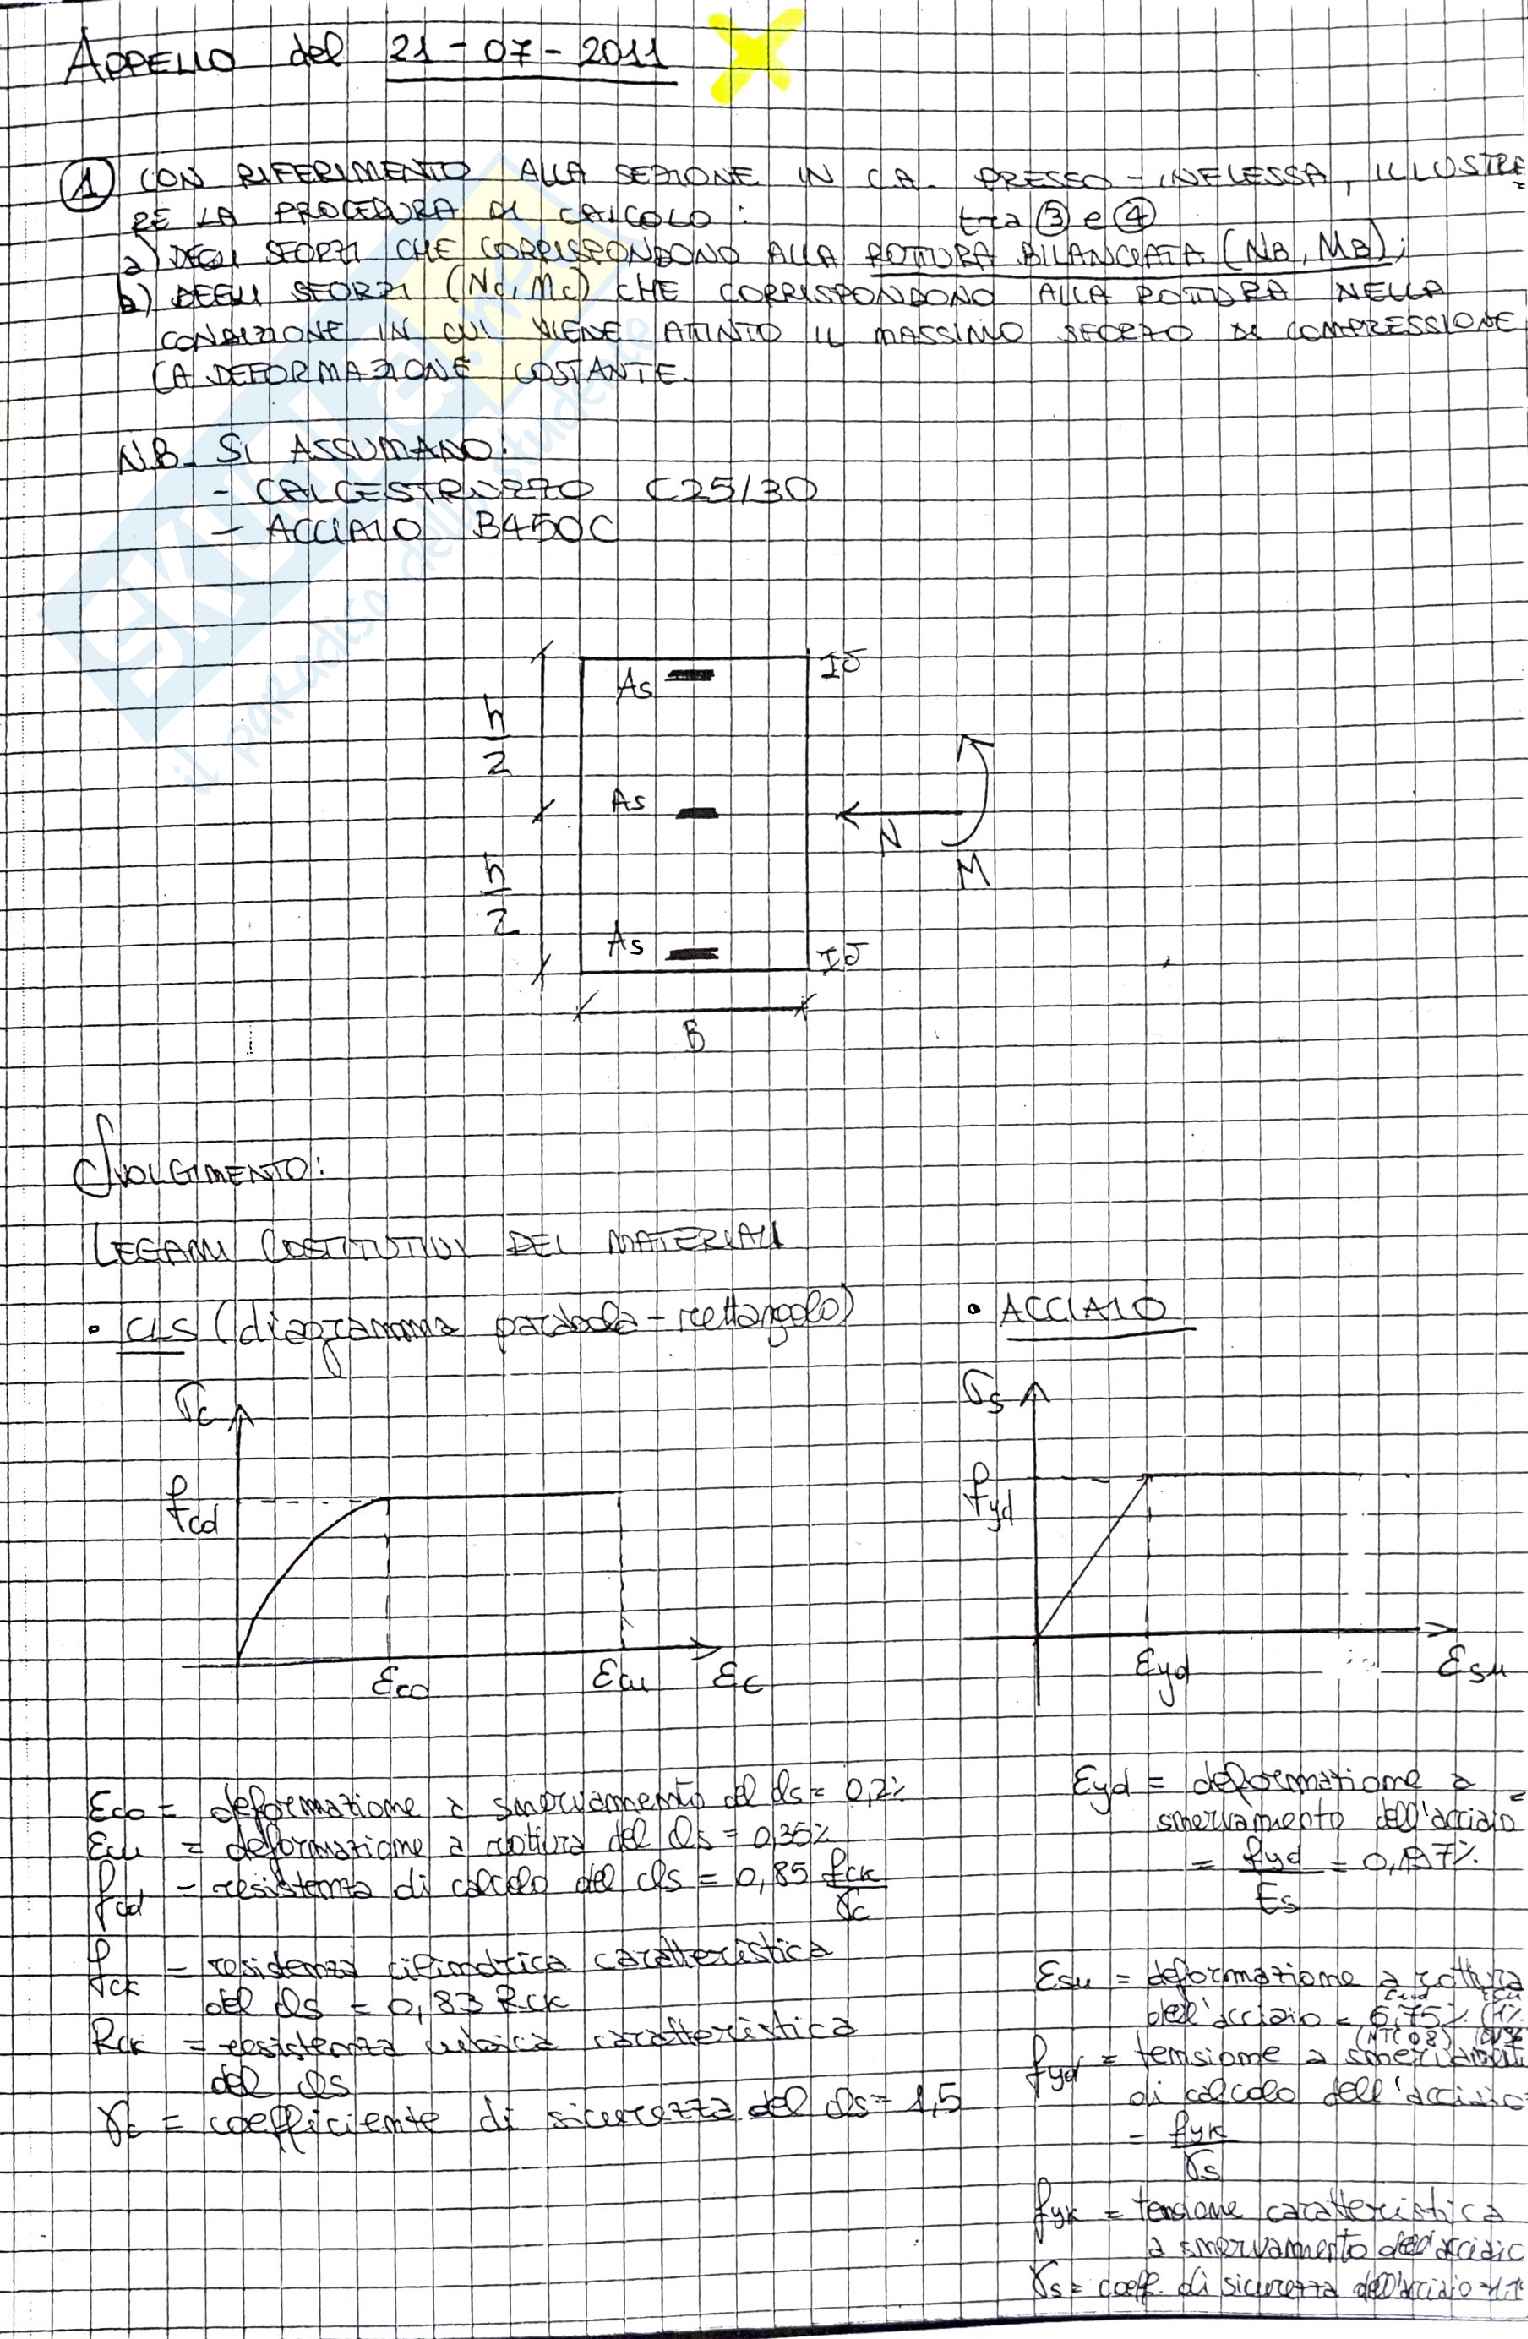 APPELLO del 21-07-2011
① CON RIFERIMENTO ALLA SEZIONE IN C.A. PRESSO-INFLESSA, ILLUSTRA=
RE LA PROCEDURA DI CALCOLO: tra ③ e ④
a) DEGLI SFORZI CHE CORRISPONDONO ALLA ROTTURA BILANCIATA (NB, MB);
b) DEGLI SFORZI (Nc, Mc) CHE CORRISPONDONO ALLA ROTTURA NELLA
CONDIZIONE IN CUI VIENE ATTINTO IL MASSIMO SFORZO DI COMPRESSIONE
A DEFORMAZIONE COSTANTE.
N.B. SI ASSUMANO:
- CALCESTRUZZO C25/30
- ACCIAIO B450C
SKUOLA.net
il paradiso dello studente
As
δ
h/2
As
N
M
h/2
As
δ
B
SVOLGIMENTO:
LEGAMI COSTITUTIVI DEI MATERIALI
• CLS (diagramma parabola-rettangolo)
• ACCIAIO
σc
fcd
εco
εcu
εc
σs
fyd
εyd
εsu
εco = deformazione a snervamento del cls = 0,2%
εcu = deformazione a rottura del cls = 0,35%
fcd = resistenza di calcolo del cls = 0,85 fck/γc
fck = resistenza cilindrica caratteristica
del cls = 0,83 Rck
Rck = resistenza cubica caratteristica
del cls
γc = coefficiente di sicurezza del cls = 1,5
εyd = deformazione a
snervamento dell'acciaio =
= fyd/Es = 0,197%
εsu = deformazione a rottura
dell'acciaio = 6,75% (1%
(NTC 08)
fyd = tensione a snervamento
di calcolo dell'acciaio
= fyk/γs
fyk = tensione caratteristica
a snervamento dell'acciaio
γs = coeff. di sicurezza dell'acciaio